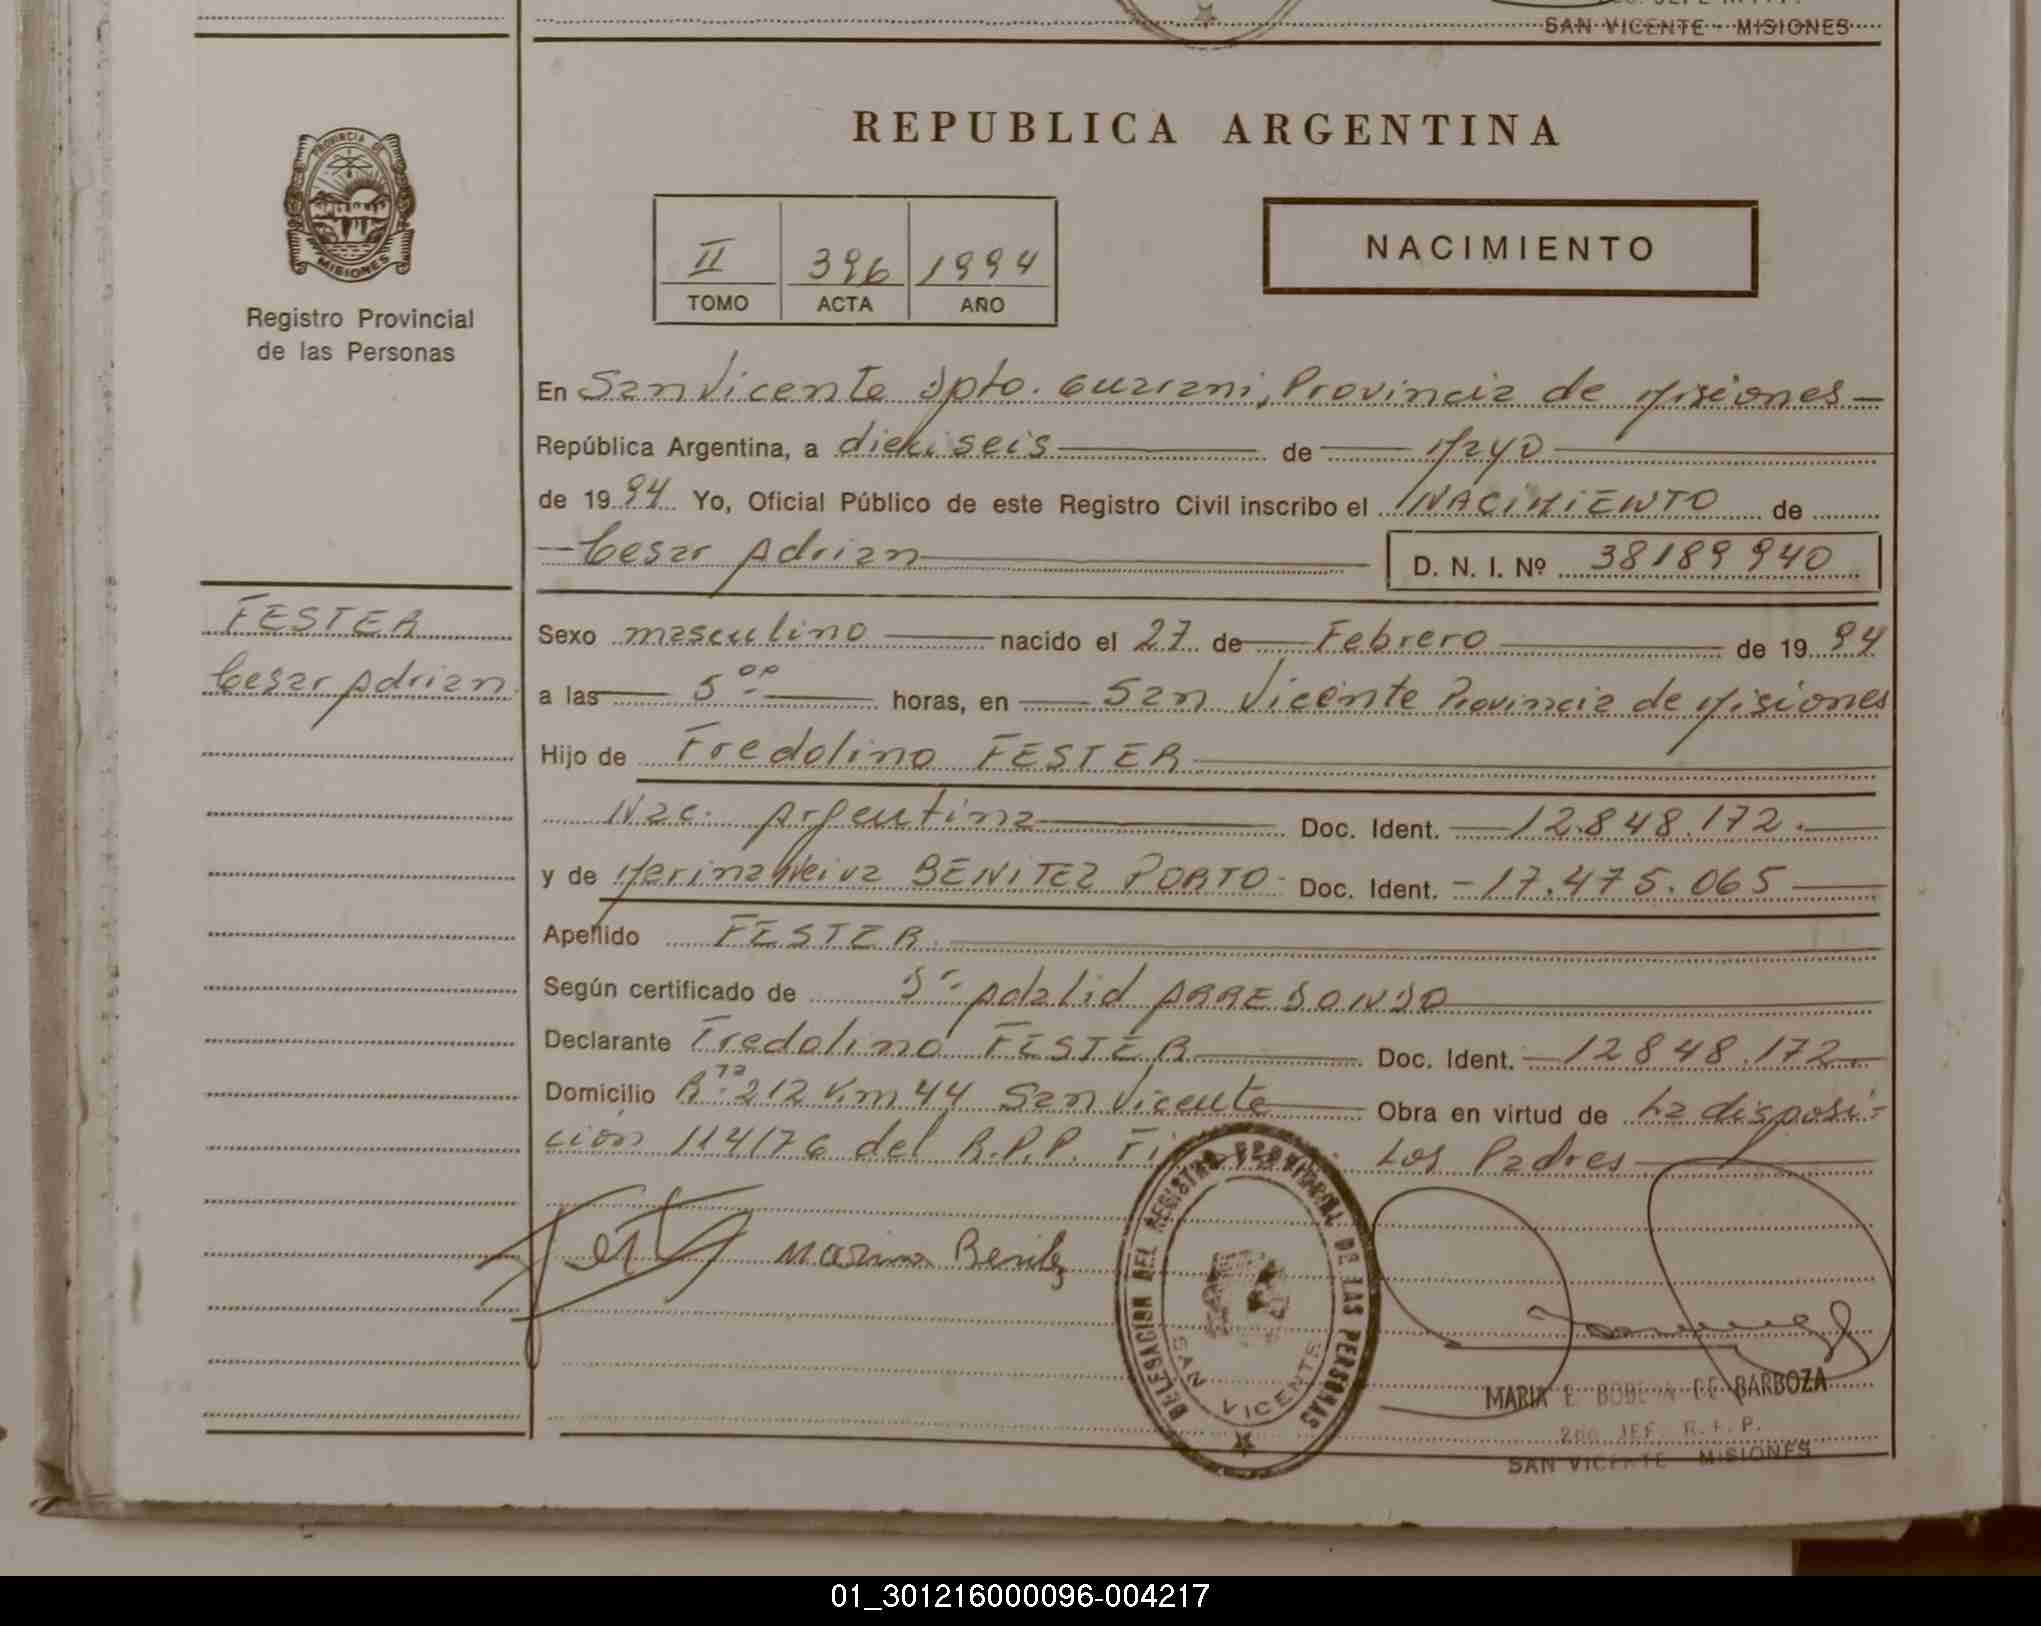 SAN VICENTE - MISIONES
PROVINCIA DE
MISIONES
Registro Provincial
de las Personas
REPUBLICA ARGENTINA
II 396 1994
TOMO ACTA AÑO
NACIMIENTO
En San Vicente Dpto. Guarani, Provincia de Misiones
República Argentina, a dieciseis de Mayo
de 1994 Yo, Oficial Público de este Registro Civil inscribo el NACIMIENTO de
Cesar Adrian D. N. I. Nº 38189940
FESTER
Cesar Adrian
Sexo masculino nacido el 27 de Febrero de 1994
a las 5 00 horas, en San Vicente Provincia de Misiones
Hijo de Fredolino FESTER
Nac. Argentina Doc. Ident. 12.848.172.
y de Marina Neiva BENITEZ PORTO Doc. Ident. 17.475.065
Apellido FESTER
Según certificado de Adalid ARREDONDO
Declarante Fredolino FESTER Doc. Ident. 12848.172.
Domicilio R. 212 Km 44 San Vicente Obra en virtud de La disposi-
ción 114/76 del R.P.P. Los Padres
Marina Benitez
DELEGACION DEL REGISTRO PROVINCIAL DE LAS PERSONAS
SAN VICENTE
MARIA E DE BARBOZA
2do JEF. R.P.P.
SAN VICENTE MISIONES
01_301216000096-004217